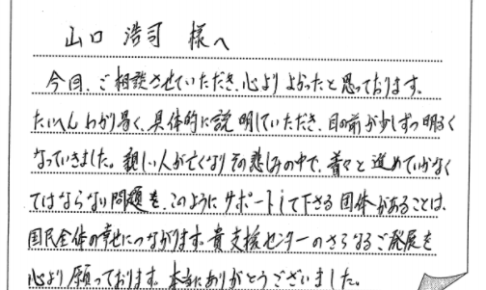 山口 浩司 様へ
今回、ご相談させていただき、心より よかったと思っております。
たいへん わかり易く、具体的に説明していただき、目の前が少しずつ明るく
なっていきました。親しい人が亡くなりその悲しみの中で、着々と進めていかなく
てはならない問題を、このようにサポートして下さる団体があることは、
国民全体の幸せにつながります。貴支援センターのさらなるご発展を
心より願っております。本当にありがとうございました。